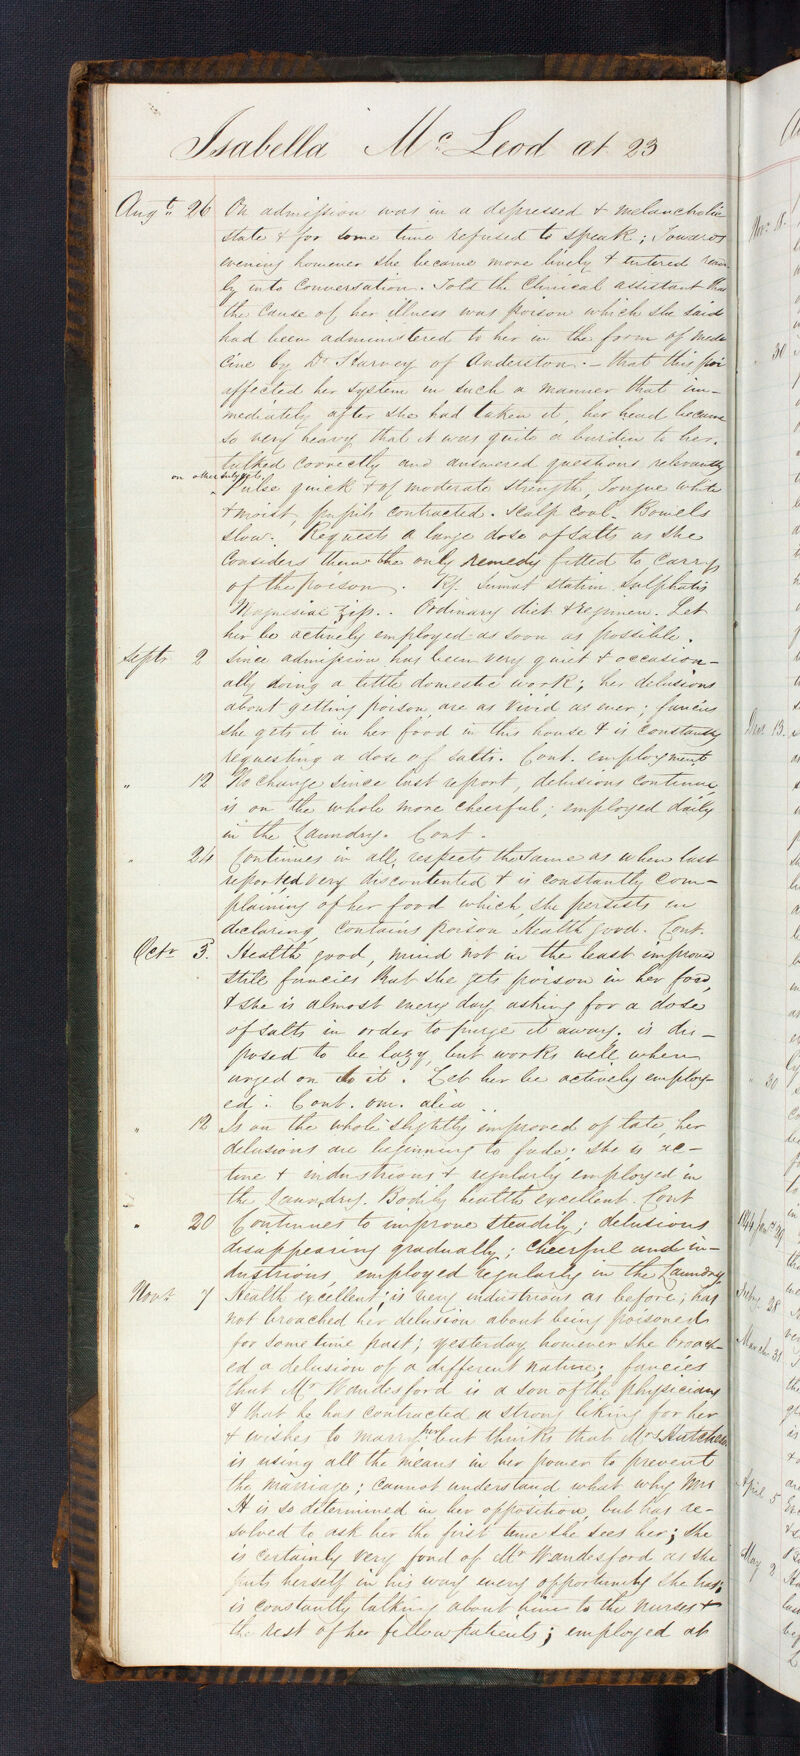 Isabella McLeod at 23
Augt 26 On admission was in a depressed & melancholic
state & for some time refused to speak; Towards
evening however she became more lively & entered
ly into conversation. Told the Clinical assistant that
the cause of her illness was poison which she said
had been administered to her in the from of medi
cine by Dr Harvey of Anderston. – that this poi
affected her system in such a manner that im-
mediately after she had taken it, her head became
so very heavy that it was quite a burden to her.
talked correctly and answered questions relevantly
on other subjects.
Pulse quick & of moderate strength, Tongue white
& moist, pupils contracted. Scalp cool. Bowels
slow. Requests a large dose of salts as she
Considers them the only remedy fitted to carry
of the poison. Rx. Sumat statim Sulphatis
Magnesiae ℥jss. Ordinary diet & regimen. Let
her be actively employed as soon as possible.
Septr 2 Since admission has been very quiet & occasion-
ally doing a little domestic work; her delusions
about getting poison are as vivid as ever; fancies
she gets it in her food in this house & is constantly
requesting a dose of salts. Cont. employment
" 12 No change since last report, delusions continue,
is on the whole more cheerful; employed daily
in the Laundry. Cont.
" 24 Continues in all respects the same as when last
reported very discontented & is constantly com-
plaining of her food which she persists in
declaring contains poison Health good. Cont.
Octr 3. Health good, mind not in the least improved
still fancies that she gets poison in her food,
& she is almost every day asking for a dose
of salts in order to purge it away. is dis-
posed to be lazy, but works well when
urged on to it. Let her be actively employ-
ed. Cont. om. alia
" 12 Is on the whole slightly improved of late, her
delusions are beginning to fade; she is ac-
tive & industrious & regularly employed in
the Laundry. Bodily health excellent. Cont
" 20 Continues to improve steadily; delusions
disappearing gradually; cheerful and in-
dustrious, employed regularly in the Laundry
Novr 7 Health excellent; is very industrious as before; has
not broached her delusion about being poisoned
for sometime past; yesterday however she broach-
ed a delusion of a different nature; fancies
that Mr Wandesford is a son of the physicians
& that he has contracted a strong liking for her
& wishes to marry her but thinks that Mrs
is using all the means in her power to prevent
the marriage; cannot understand what why Mrs
H is so determined in her opposition, but has re-
solved to ask her the first time she sees her; she
is certainly very fond of Mr Wandesford as she
puts herself in his way every opportunity she has;
is constantly talking about him to the nurses &
the rest of her fellow patients; employed at
Nov. 18.
30
Decr 13.
20
1844 Jany 29
Feby 28
March 31
April 5
May 2